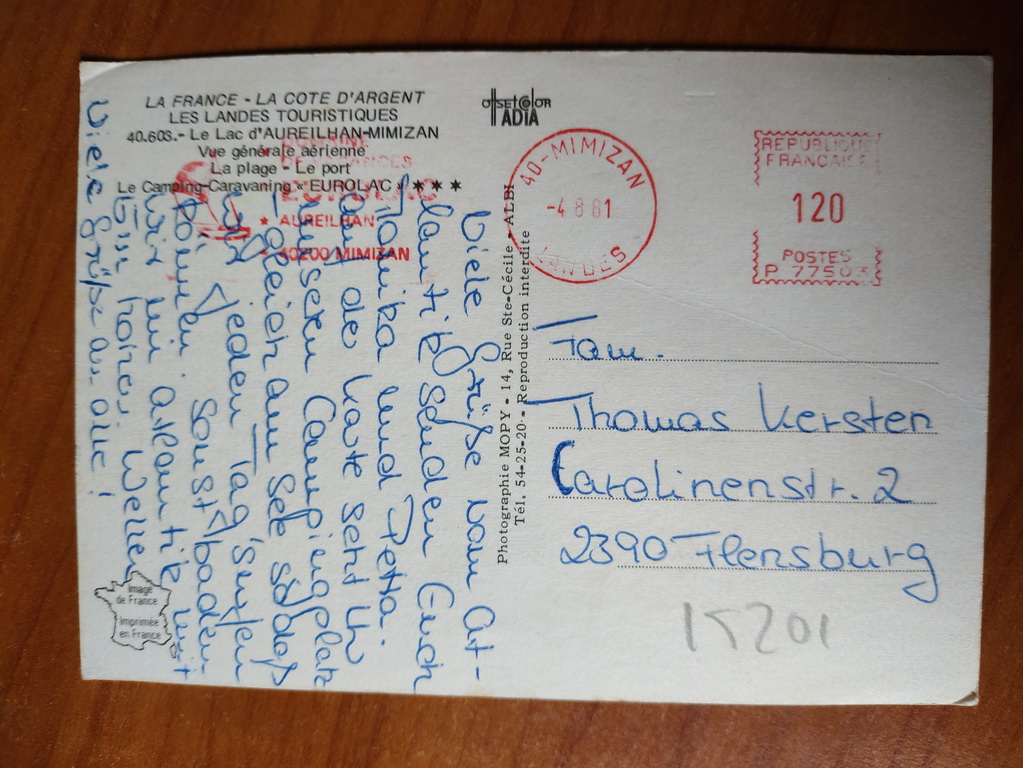 LA FRANCE - LA COTE D'ARGENT
LES LANDES TOURISTIQUES
40.603.- Le Lac d'AUREILHAN-MIMIZAN
Vue générale aérienne
La plage - Le port
Le Camping-Caravaning « EUROLAC » ★ ★ ★
offsetcolor
ADIA
EUROLAC
★ AUREILHAN
★ 40200 MIMIZAN
40-MIMIZAN
-4 8 81
LANDES
REPUBLIQUE
FRANCAISE
120
POSTES
P 77503
Photographie MOPY - 14, Rue Ste-Cécile - ALBI
Tél. 54-25-20 - Reproduction interdite
Viele Grüße vom At-
lantik senden Euch
Annika und Petra.
Auf der Karte seht Ihr
unseren Campingplatz
gleich am See, sodaß
wir jeden Tag surfen
können. Sonst baden
wir im Atlantik mit
hohen Wellen
Viele Grüße an alle!
Fam.
Thomas Kersten
Carolinenstr. 2
2390 Flensburg
15201
Image
de France
Imprimée
en France